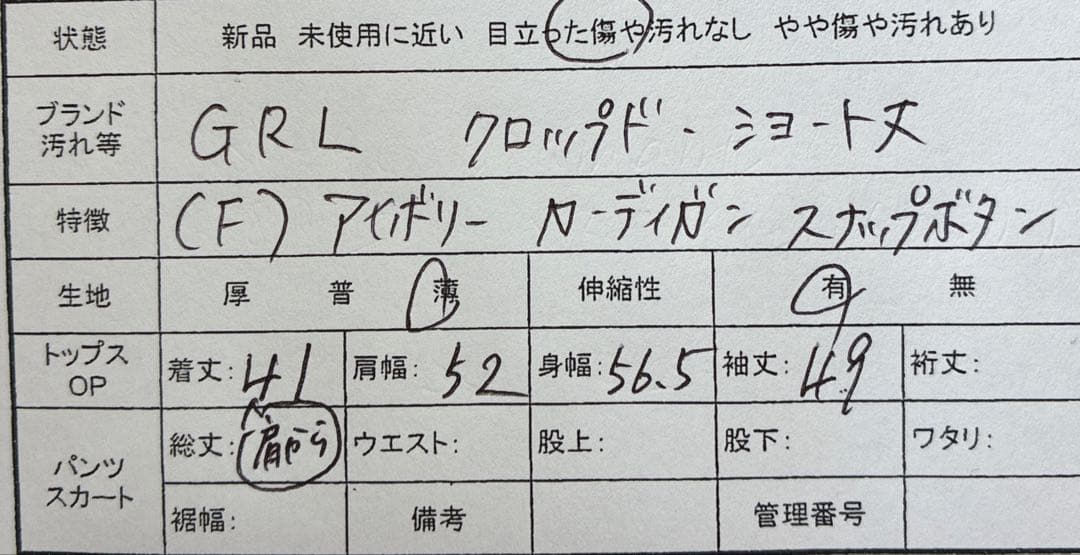 状態 新品 未使用に近い 目立った傷や汚れなし やや傷や汚れあり
ブランド 汚れ等 GRL クロップド・ショート丈
特徴 (F) アイボリー カーディガン スナップボタン
生地 厚 普 薄 伸縮性 有 無
トップス OP 着丈:41 肩幅:52 身幅:56.5 袖丈:49 裄丈:
パンツ スカート 総丈:肩から ウエスト: 股上: 股下: ワタリ:
裾幅: 備考 管理番号